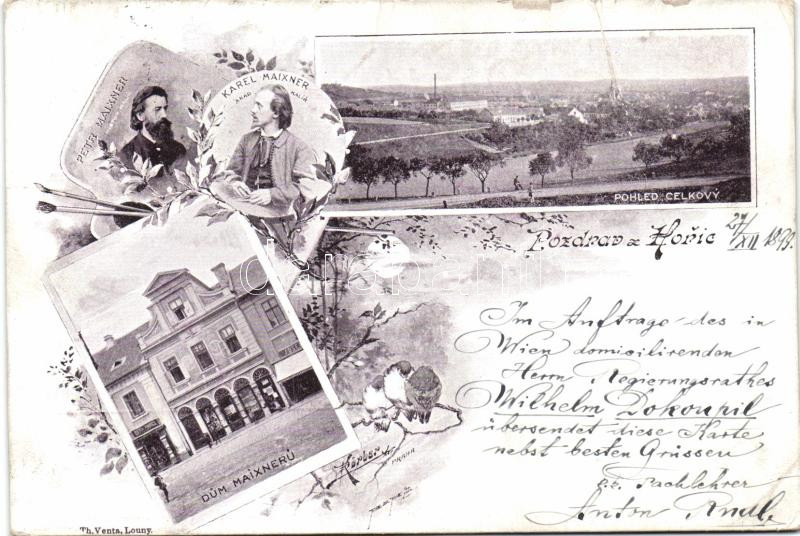 PETR MAIXNER
KAREL MAIXNER
AKAD. MALÍŘ
POHLED CELKOVÝ
Pozdrav z Hořic
27/XII 1898.
Im Auftrage des in
Wien domizilirenden
Herrn Regierungsrathes
Wilhelm Dokoupil
übersendet diese Karte
nebst besten Grüssen
Fachlehrer
Anton
DŮM MAIXNERŮ
PRAHA
Th. Venta, Louny.